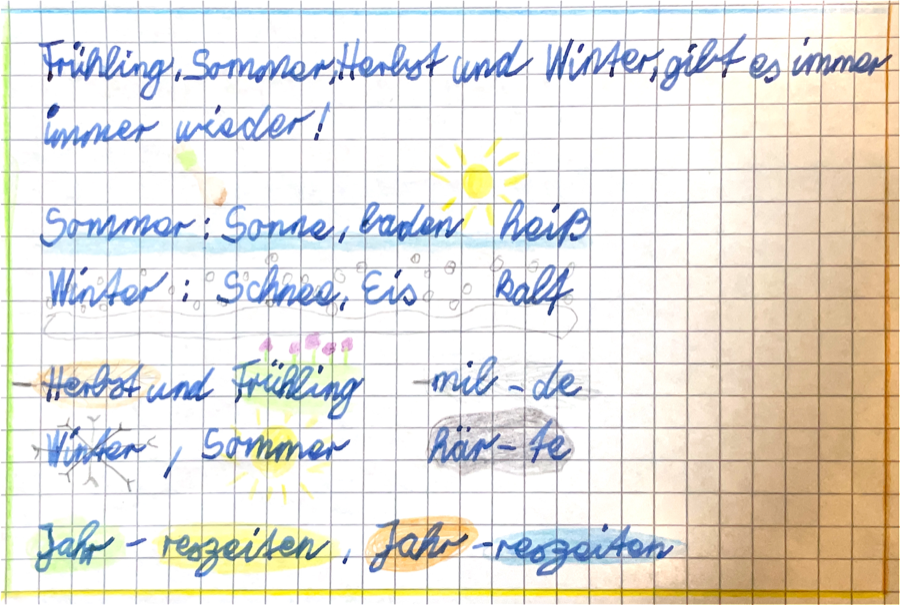 Frühling, Sommer, Herbst und Winter, gibt es immer
immer wieder!
Sommer: Sonne, baden heiß
Winter: Schnee, Eis kalt
- Herbst und Frühling - mil-de
Winter, Sommer här-te
Jahr-reszeiten, Jahr-reszeiten